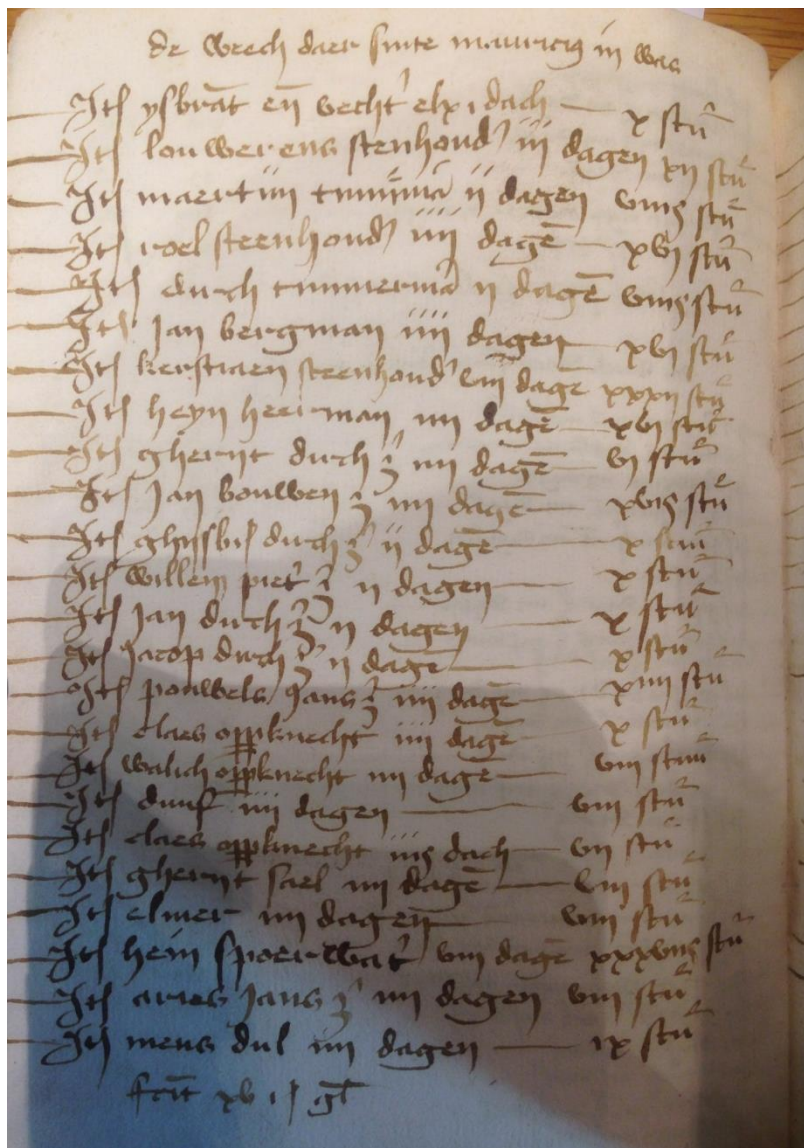 de weech daer sinte mauricius in was
Itē ysbrāt eñ vecht' elx i dach x stū
Itē louwerens stenhoud' iij dagen xij stū
Itē maertijn timmā ij dagen stū
Itē roel steenhoud' iiij dagē xvj stū
Itē dirch timmermā ij dagē stū
Itē Jan bergman iiij dagen xvj stū
Itē kerstiaen steenhoud' viij dagē xxxij stū
Itē heyn heerman iiij dagē xvj stū
Itē gherijt dirch z' iiij dagē vj stū
Itē Jan bouwen z' iiij dagē stū
Itē ghijsb' dirch z' ij dagē x stū
Itē willem piet' z' ij dagen x stū
Itē Jan dirch z' ij dagen x stū
Itē Jacop dirch z' ij dagē x stū
Itē pouwels Jans z' iiij dagē xiiij stū
Itē claes oppknecht iiij dagē x stū
Itē walich oppknecht iiij dagē viij stū
Itē iiij dagen viij stū
Itē claes oppknecht dach vij stū
Itē gherijt sael iiij dagē viij stū
Itē elmer iiij dagen viij stū
Itē hein spoerwat' viij dagē stū
Itē aries Jans z' iiij dagen viij stū
Itē mens dul iiij dagen ix stū
fcit gl